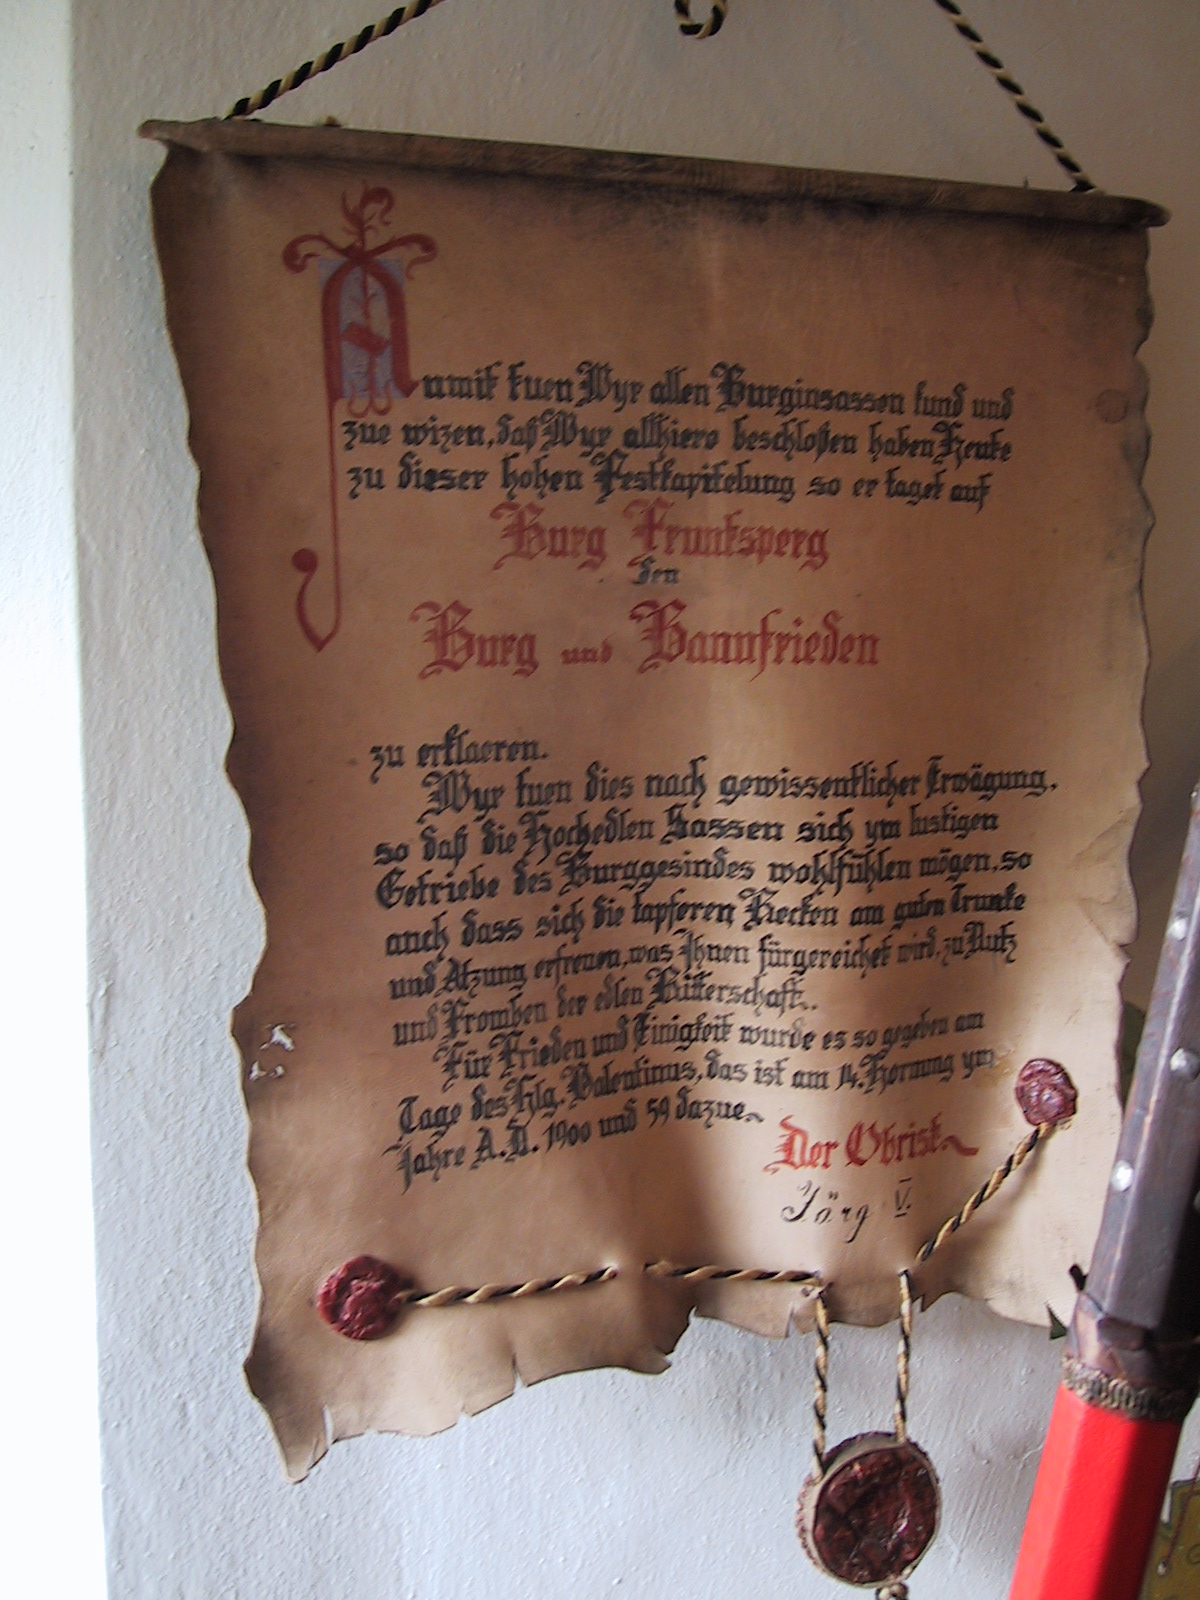 Anmit tuen Wyr allen Burginsassen kund und
zue wizen, daß Wyr allhiero beschloßen haben Heute
zu dieser hohen Festkapitelung so er taget auf
Burg Fruntsperg
den
Burg und Bannfrieden
zu erklaeren.
Wyr tuen dies nach gewissentlicher Erwägung,
so daß die Hochedlen Sassen sich ym lustigen
Getriebe des Burggesindes wohlfühlen mögen, so
auch dass sich die tapferen Recken am guten Trunke
und Atzung erfreuen, was Ihnen fürgereichet wird, zu Nutz
und Fromben der edlen Ritterschaft.
Für Frieden und Einigkeit wurde es so gegeben am
Tage des Hlg. Valentinus, das ist am 14. Hornung ym
Jahre A.D. 1900 und 59 dazue
Der Obrist
Jörg V.